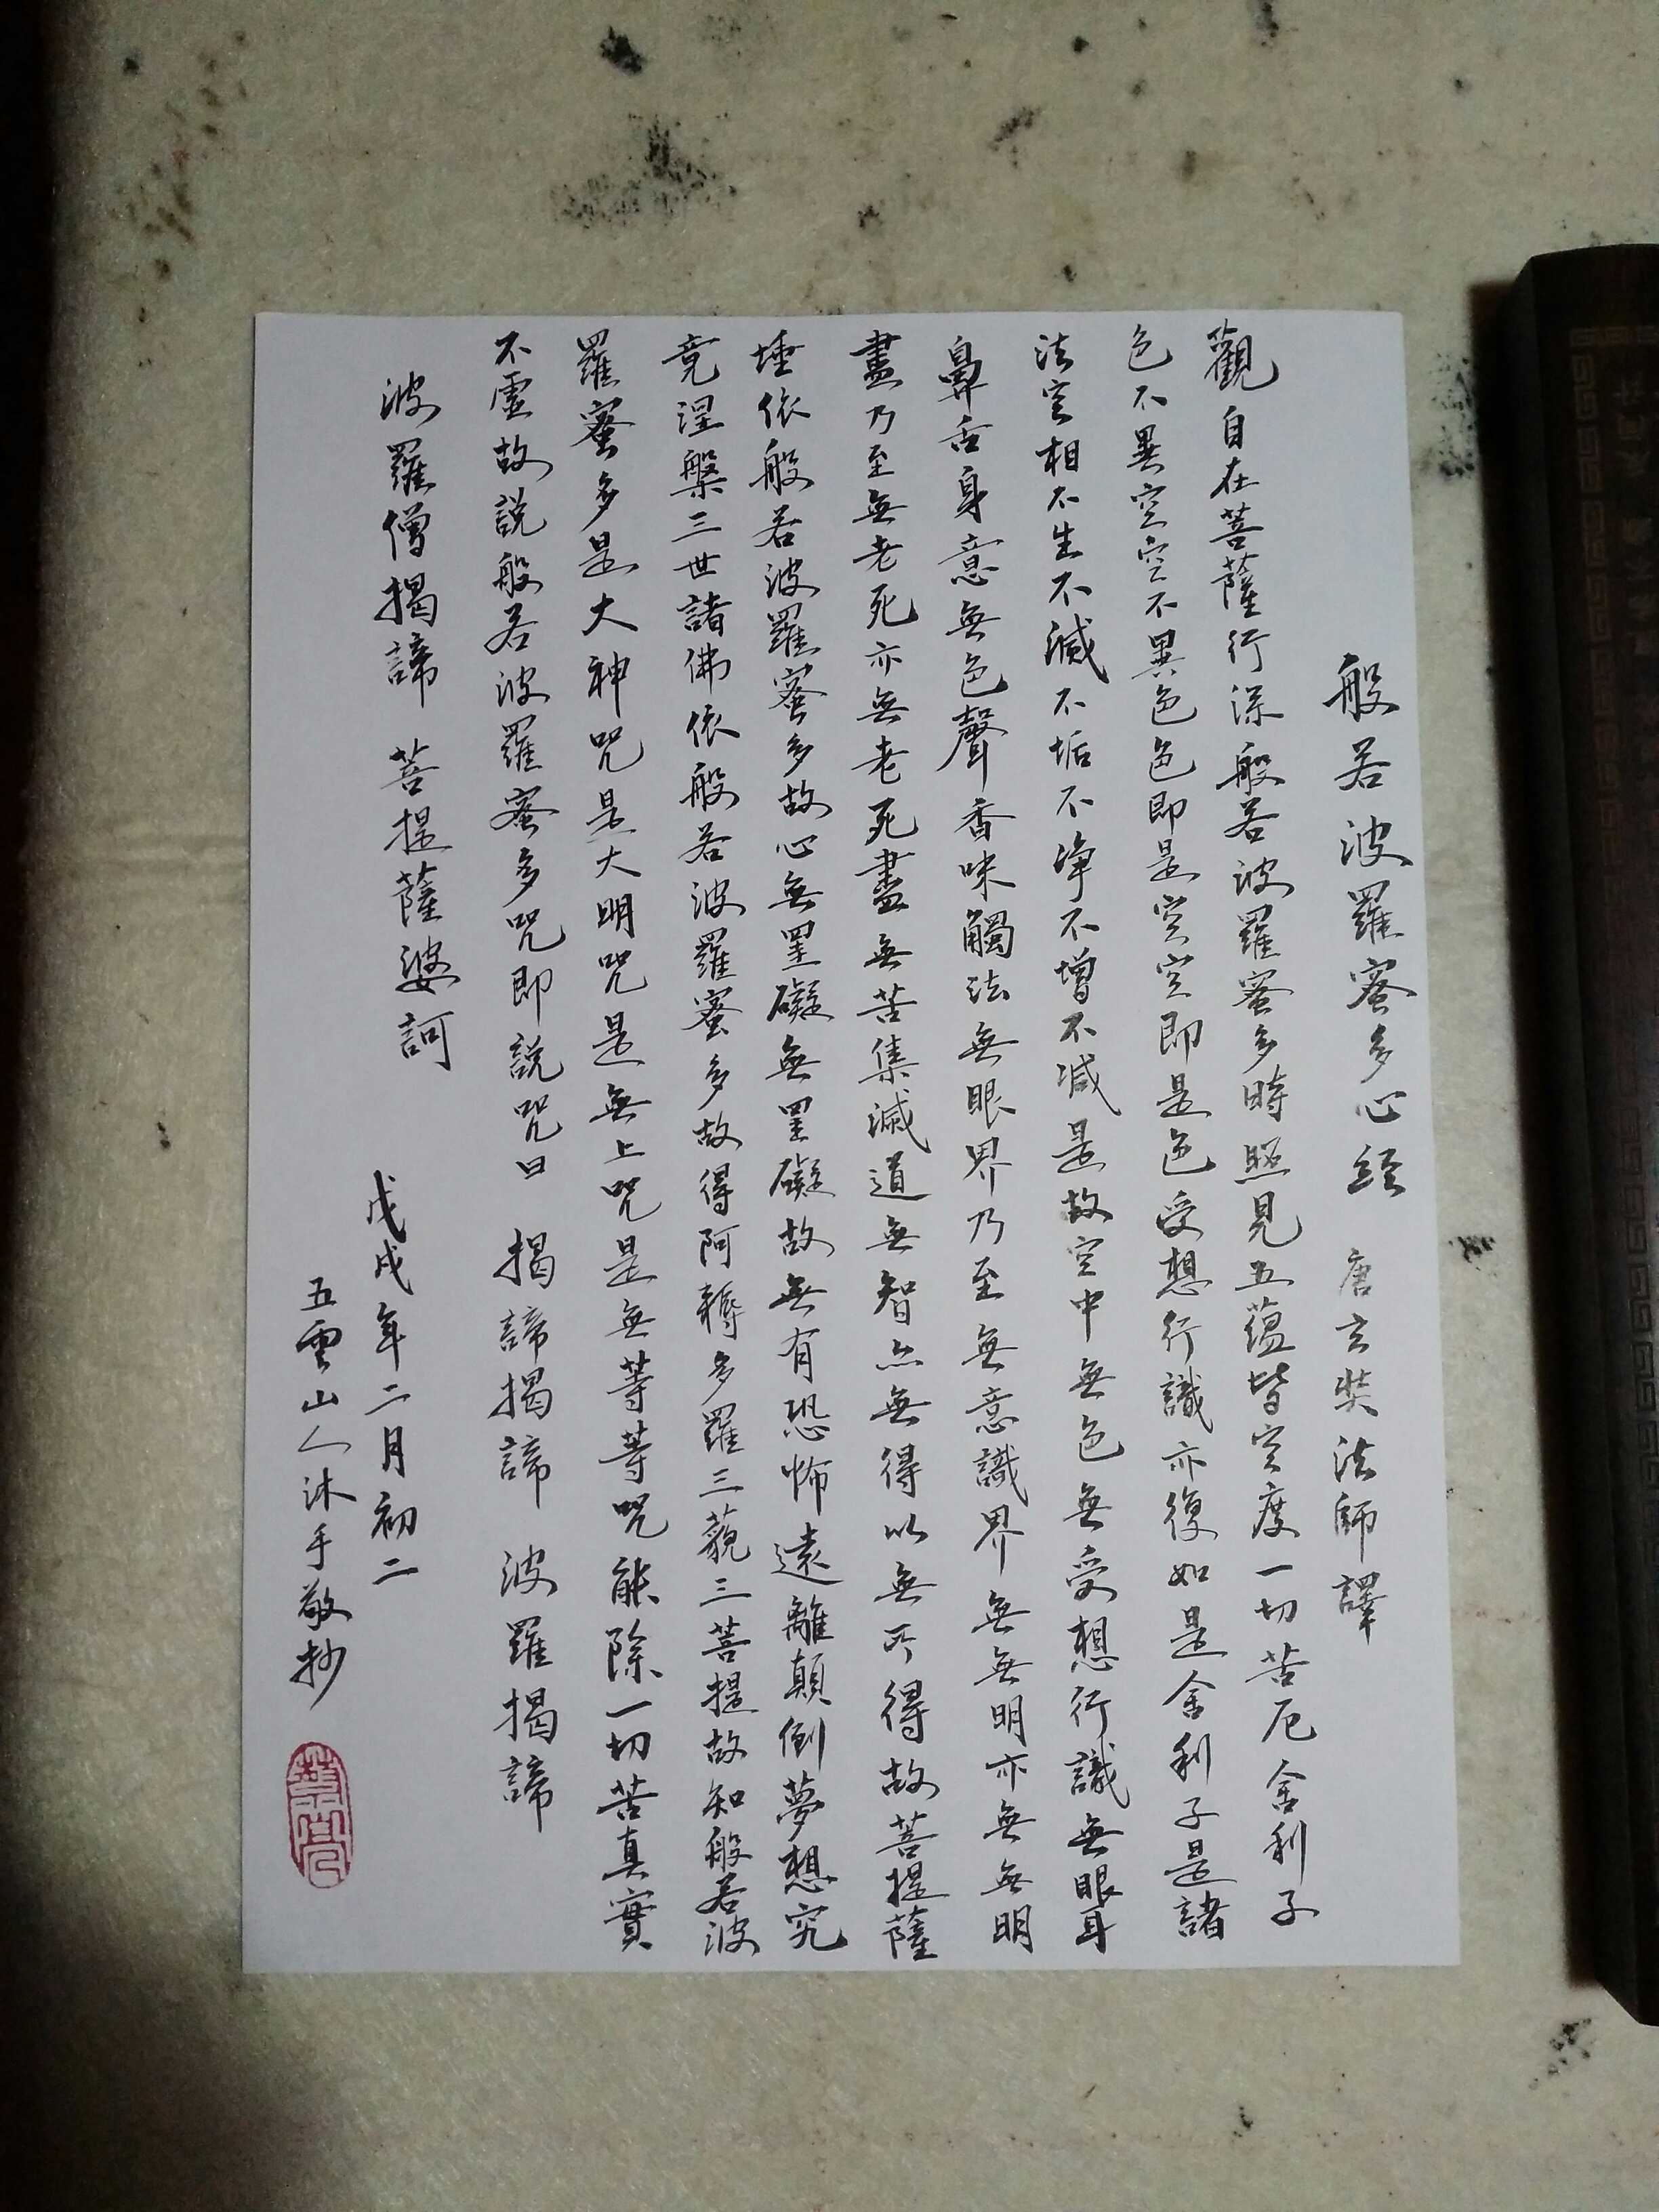 般若波羅蜜多心経 唐玄奘法師譯
觀自在菩薩行深般若波羅蜜多時照見五蘊皆空度一切苦厄舍利子
色不異空空不異色色即是空空即是色受想行識亦復如是舍利子是諸
法空相不生不滅不垢不净不增不減是故空中無色無受想行識無眼耳
鼻舌身意無色聲香味觸法無眼界乃至無意識界無無明亦無無明
盡乃至無老死亦無老死盡無苦集滅道無智亦無得以無所得故菩提薩
埵依般若波羅蜜多故心無罣礙無罣礙故無有恐怖遠離顛倒夢想究
竟涅槃三世諸佛依般若波羅蜜多故得阿耨多羅三藐三菩提故知般若波
羅蜜多是大神咒是大明咒是無上咒是無等等咒能除一切苦真實
不虛故説般若波羅蜜多咒即説咒曰 揭諦揭諦 波羅揭諦
波羅僧揭諦 菩提薩婆訶
戊戌年二月初二
五雲山人沐手敬抄